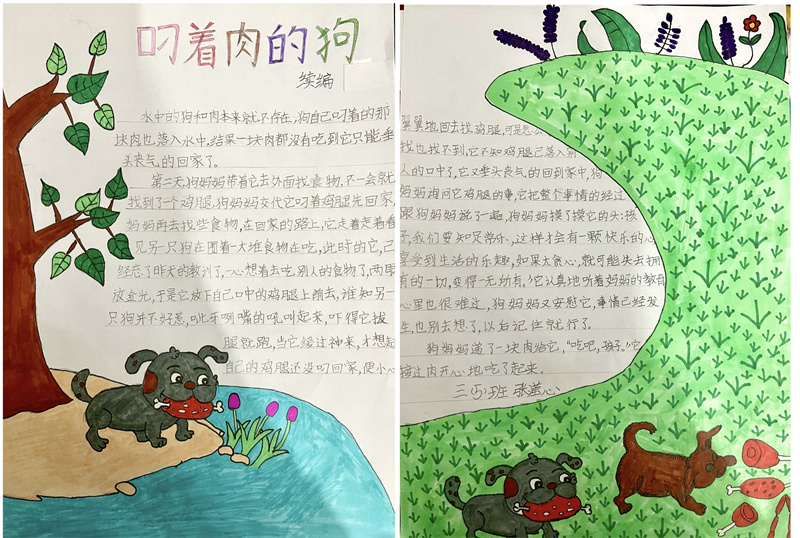 叼着肉的狗
续编
水中的狗和肉本来就不存在,狗自己叼着的那
块肉也落入水中,结果一块肉都没有吃到它只能垂
头丧气的回家了。
第二天狗妈妈带着它去外面找食物,不一会就
找到了个鸡腿,狗妈妈交代它叼着鸡腿先回家,
妈妈再去找些食物,在回家的路上,它走着走着看
见另一只狗在围着一大堆食物在吃,此时的它,已
经忘了昨天的教训了,一心想着去吃别人的食物了,两眼
放金光,于是它放下自己口中的鸡腿上前去,谁知另一
只狗并不好惹,呲牙咧嘴的吼叫起来,吓得它拔
腿就跑,当它缓过神来,才想起
自己的鸡腿还没叼回家,便小心
翼翼地回去找鸡腿,可是怎么
找也找不到,它不知鸡腿已落入别
人的口中了,它又垂头丧气的回到家中,狗
妈妈询问它鸡腿的事,它把整个事情的经过
跟狗妈妈说了一遍,狗妈妈摸了摸它的头:孩
子,我们要知足常乐,这样才会有一颗快乐的心
享受到生活的乐趣,如果太贪心,就可能失去拥
有的一切,变得一无所有。它认真地听着妈妈的教育
心里也很难过,狗妈妈又安慰它,事情已经发
生,也别去想了,以后记住就行了。
狗妈妈递了一块肉给它,“吃吧,孩子。”它
接过肉开心地吃了起来。
三(5)班 张 心